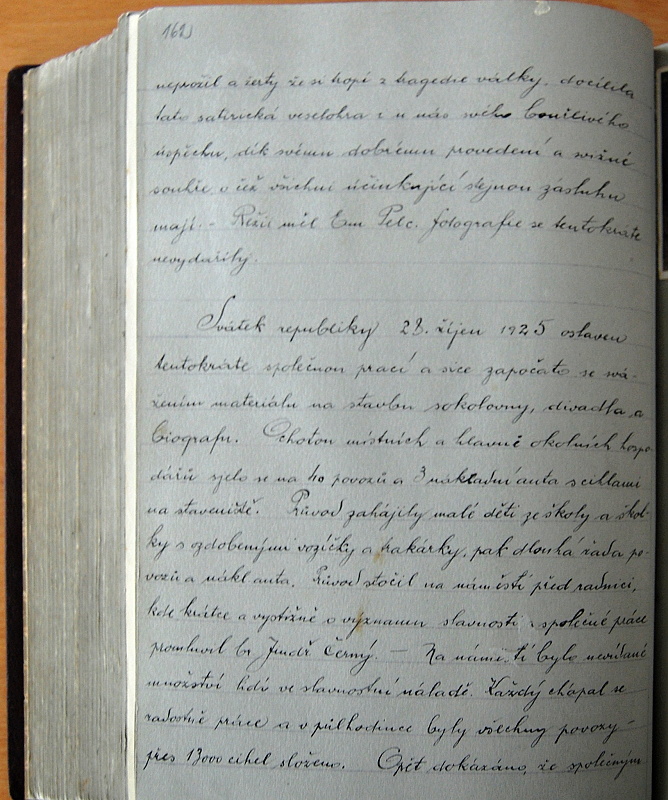 162
neprožil a žerty že si tropí z tragedie války, docílila
tato satirická veselohra i u nás svého bouřlivého
úspěchu, dík svému dobrému provedení a svižné
souhře, o čež všichni účinkující stejnou zásluhu
mají. - Režii měl Em. Pelc. fotografie se tentokráte
nevydařily.
Svátek republiky 28. říjen 1925 oslaven
tentokráte společnou prací a sice započato se svá-
žením materiálu na stavbu sokolovny, divadla a
biografu. Ochotou místních a hlavně okolních hospo-
dářů sjelo se na 40 povozů a 3 nákladní auta s cihlami
na staveniště. Průvod zahájily malé děti ze školy a škol-
ky s ozdobenými vozíčky a trakárky, pak dlouhá řada po-
vozů a nákl. auta. Průvod stočil na náměstí před radnici,
kde krátce a vystižně o významu slavnosti i společné práce
promluvil br. Jindř. Černý. — Na náměstí bylo nevídané
množství lidí ve slavnostní náladě. Každý chápal se
radostně práce a v půlhodince byly všechny povozy -
přes 13000 cihel složeno. Opět dokázáno, že společným